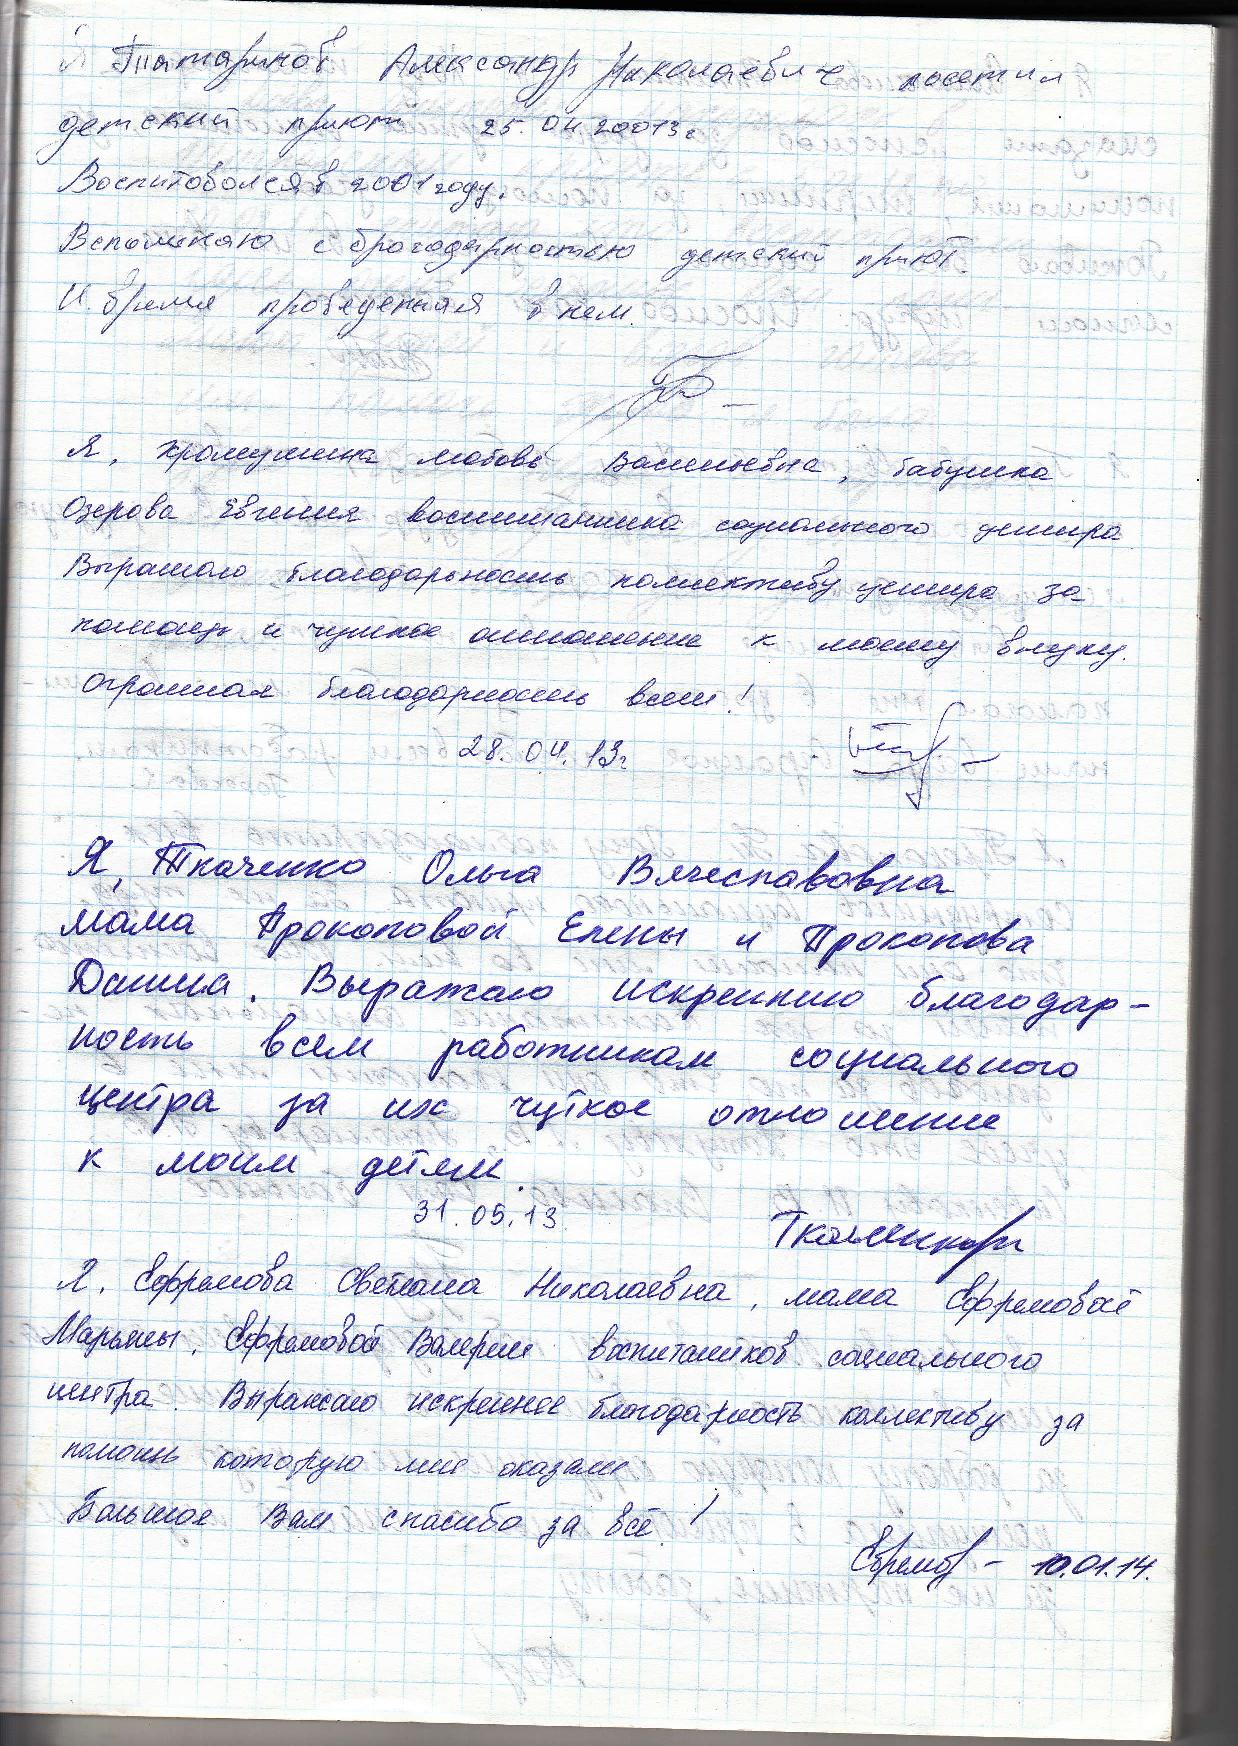 Я Татаринов Александр Николаевич посетил
детский приют 25.04.20013г
Воспитоволся в 2001 году.
Вспоминаю с брагодарностью детский приют
И время проведенная в нем.
Я, Хромушина Любовь Васильевна, бабушка
Озерова Евгения воспитанника социального центра
Выражаю благодарьность коллективу центра за
помощь и чуткое отношение к моему внуку.
Огромная благодарность всем!
28.04.13г
Я, Ткаченко Ольга Вячеславовна
мама Прокоповой Елены и Прокопова
Данила. Выражаю искреннию благодар-
ность всем работникам социального
центра за их чуткое отношение
к моим детям.
31.05.13
Ткаченко
Я, Ефремова Светлана Николаевна, мама Ефремовой
Марьяны, Ефремовой Валерии воспитанников социального
центра. Выражаю искреннее благодарность коллективу за
помощь которую мне оказали
Большое Вам спасибо за всё!
Ефремов – 10.01.14.